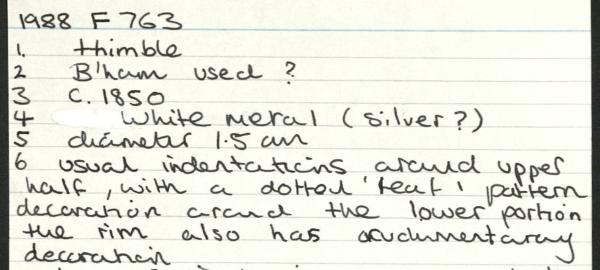 1988 F 763
1. thimble
2 B'ham used ?
3 C. 1850
4 White metal (silver?)
5 diameter 1.5 cm
6 usual indentations around upper
half, with a dotted 'leaf' pattern
decoration around the lower portion
the rim also has
decoration